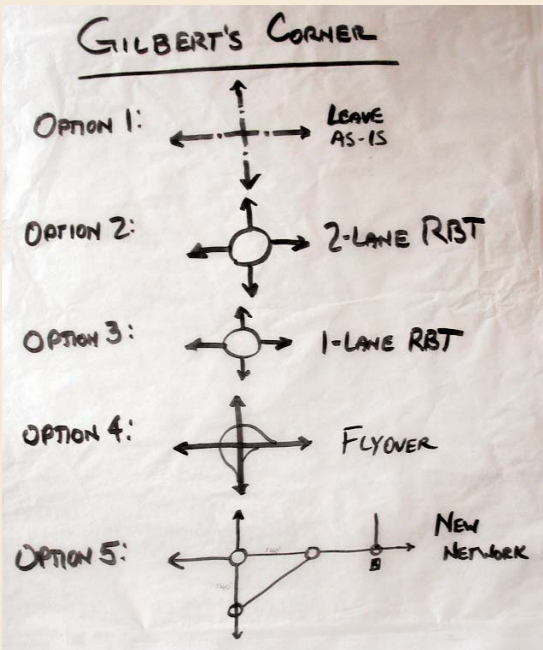 GILBERT'S CORNER
OPTION 1:
LEAVE
AS-IS
OPTION 2:
2-LANE RBT
OPTION 3:
1-LANE RBT
OPTION 4:
FLYOVER
OPTION 5:
NEW
NETWORK